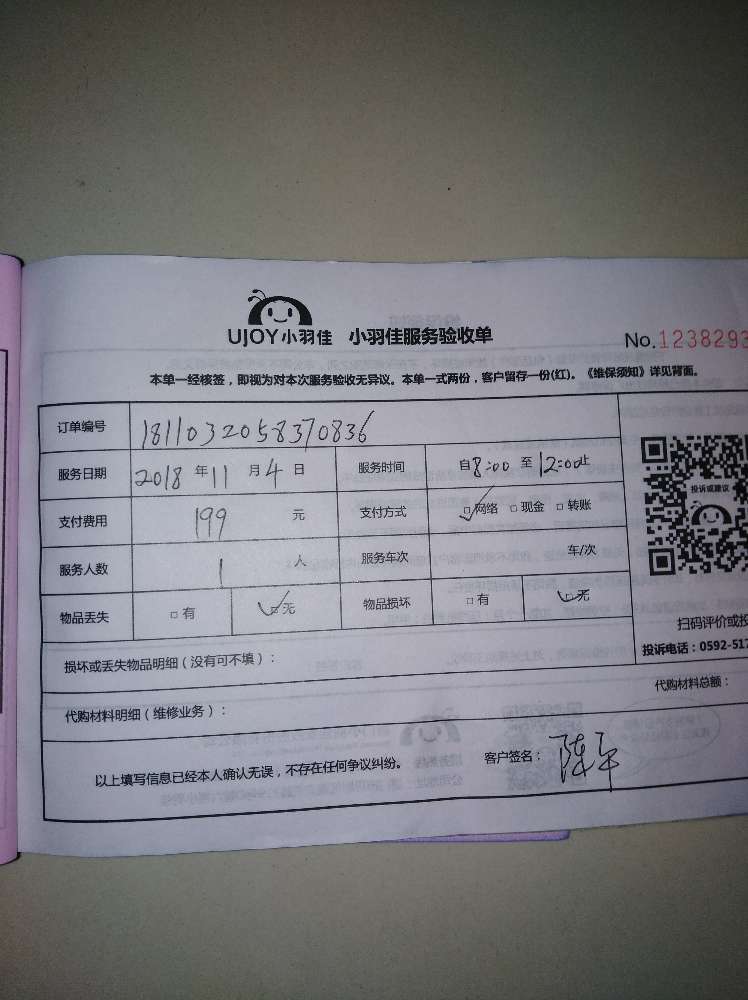 UJOY小羽佳 小羽佳服务验收单
No.1238293
本单一经核签，即视为对本次服务验收无异议。本单一式两份，客户留存一份(红)。《维保须知》详见背面。
订单编号 1811032058370836
服务日期 2018 年 11 月 4 日 服务时间 自8:00 至 12:00止
支付费用 199 元 支付方式 □网络 □现金 □转账
服务人数 1 人 服务车次 车/次
物品丢失 □有 □无 物品损坏 □有 □无
投诉或建议
扫码评价或投
投诉电话：0592-517
损坏或丢失物品明细（没有可不填）：
代购材料明细（维修业务）： 代购材料总额：
以上填写信息已经本人确认无误，不存在任何争议纠纷。 客户签名：陈平